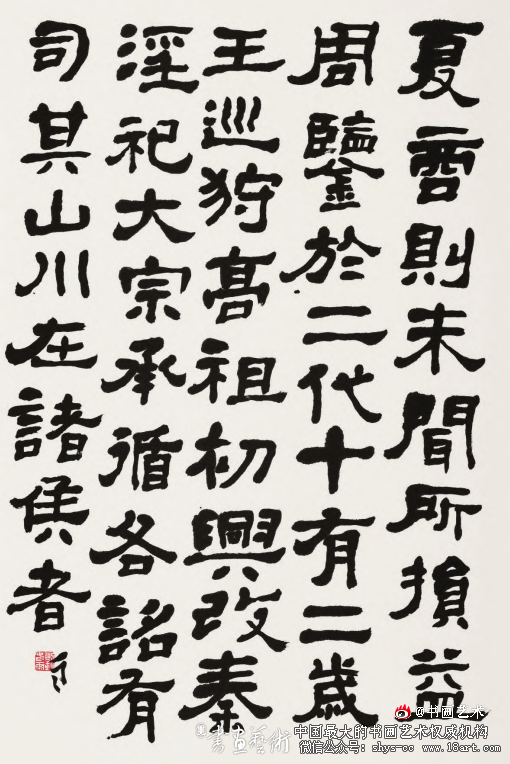 夏商則未聞所損益
周鑒於二代十有二歲
王巡狩高祖初興改秦
淫祀大宗承循各詔有
司其山川在諸侯者
@书画艺术
書畫藝術
中国最大的书画艺术权威机构
微信公众号：shys-cc www.18art.com